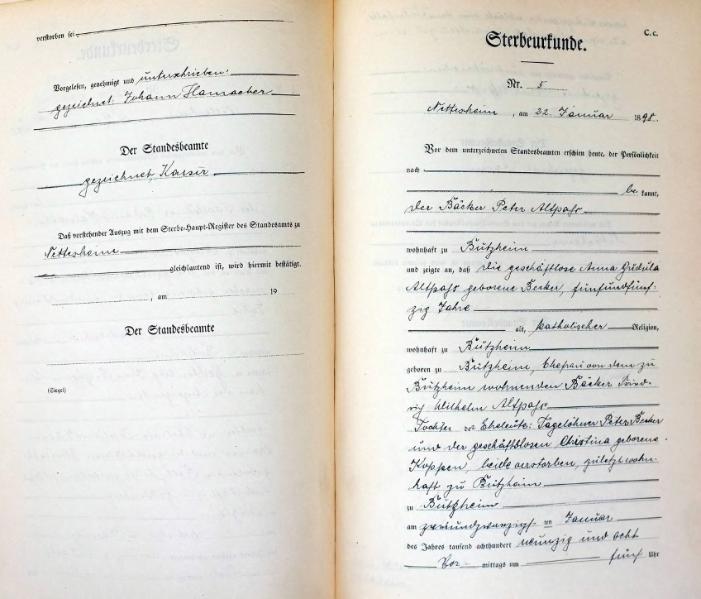 verstorben sei
Vorgelesen, genehmigt und unterschrieben.
gezeichnet: Johann
Der Standesbeamte
gezeichnet,
Daß vorstehender Auszug mit dem Sterbe-Haupt-Register des Standesamts zu
Nettesheim
gleichlautend ist, wird hiermit bestätigt.
, am 19
Der Standesbeamte
(Siegel)
C. c.
Sterbeurkunde.
Nr. 5
Nettesheim, am 22. Januar 1898.
Vor dem unterzeichneten Standesbeamten erschien heute, der Persönlichkeit
nach
be kannt,
der Bäcker Peter Altpaß
wohnhaft zu Butzheim
und zeigte an, daß die geschäftlose Anna Gudula
Altpaß geborene Becker, fünfundfünf-
zig Jahre
alt, katholischer Religion,
wohnhaft zu Butzheim
geboren zu Butzheim, Ehefrau von dem zu
Butzheim wohnenden Bäcker Fried-
rich Wilhelm Altpaß
Tochter der Eheleute: Tagelöhner Peter Becker
und der geschäftlosen Christina geborene
Koppen, beide verstorben, zuletzt wohn-
haft zu Butzheim
zu Butzheim
am zweiundzwanzigsten Januar
des Jahres tausend achthundert neunzig und acht
Vor- mittags um fünf Uhr